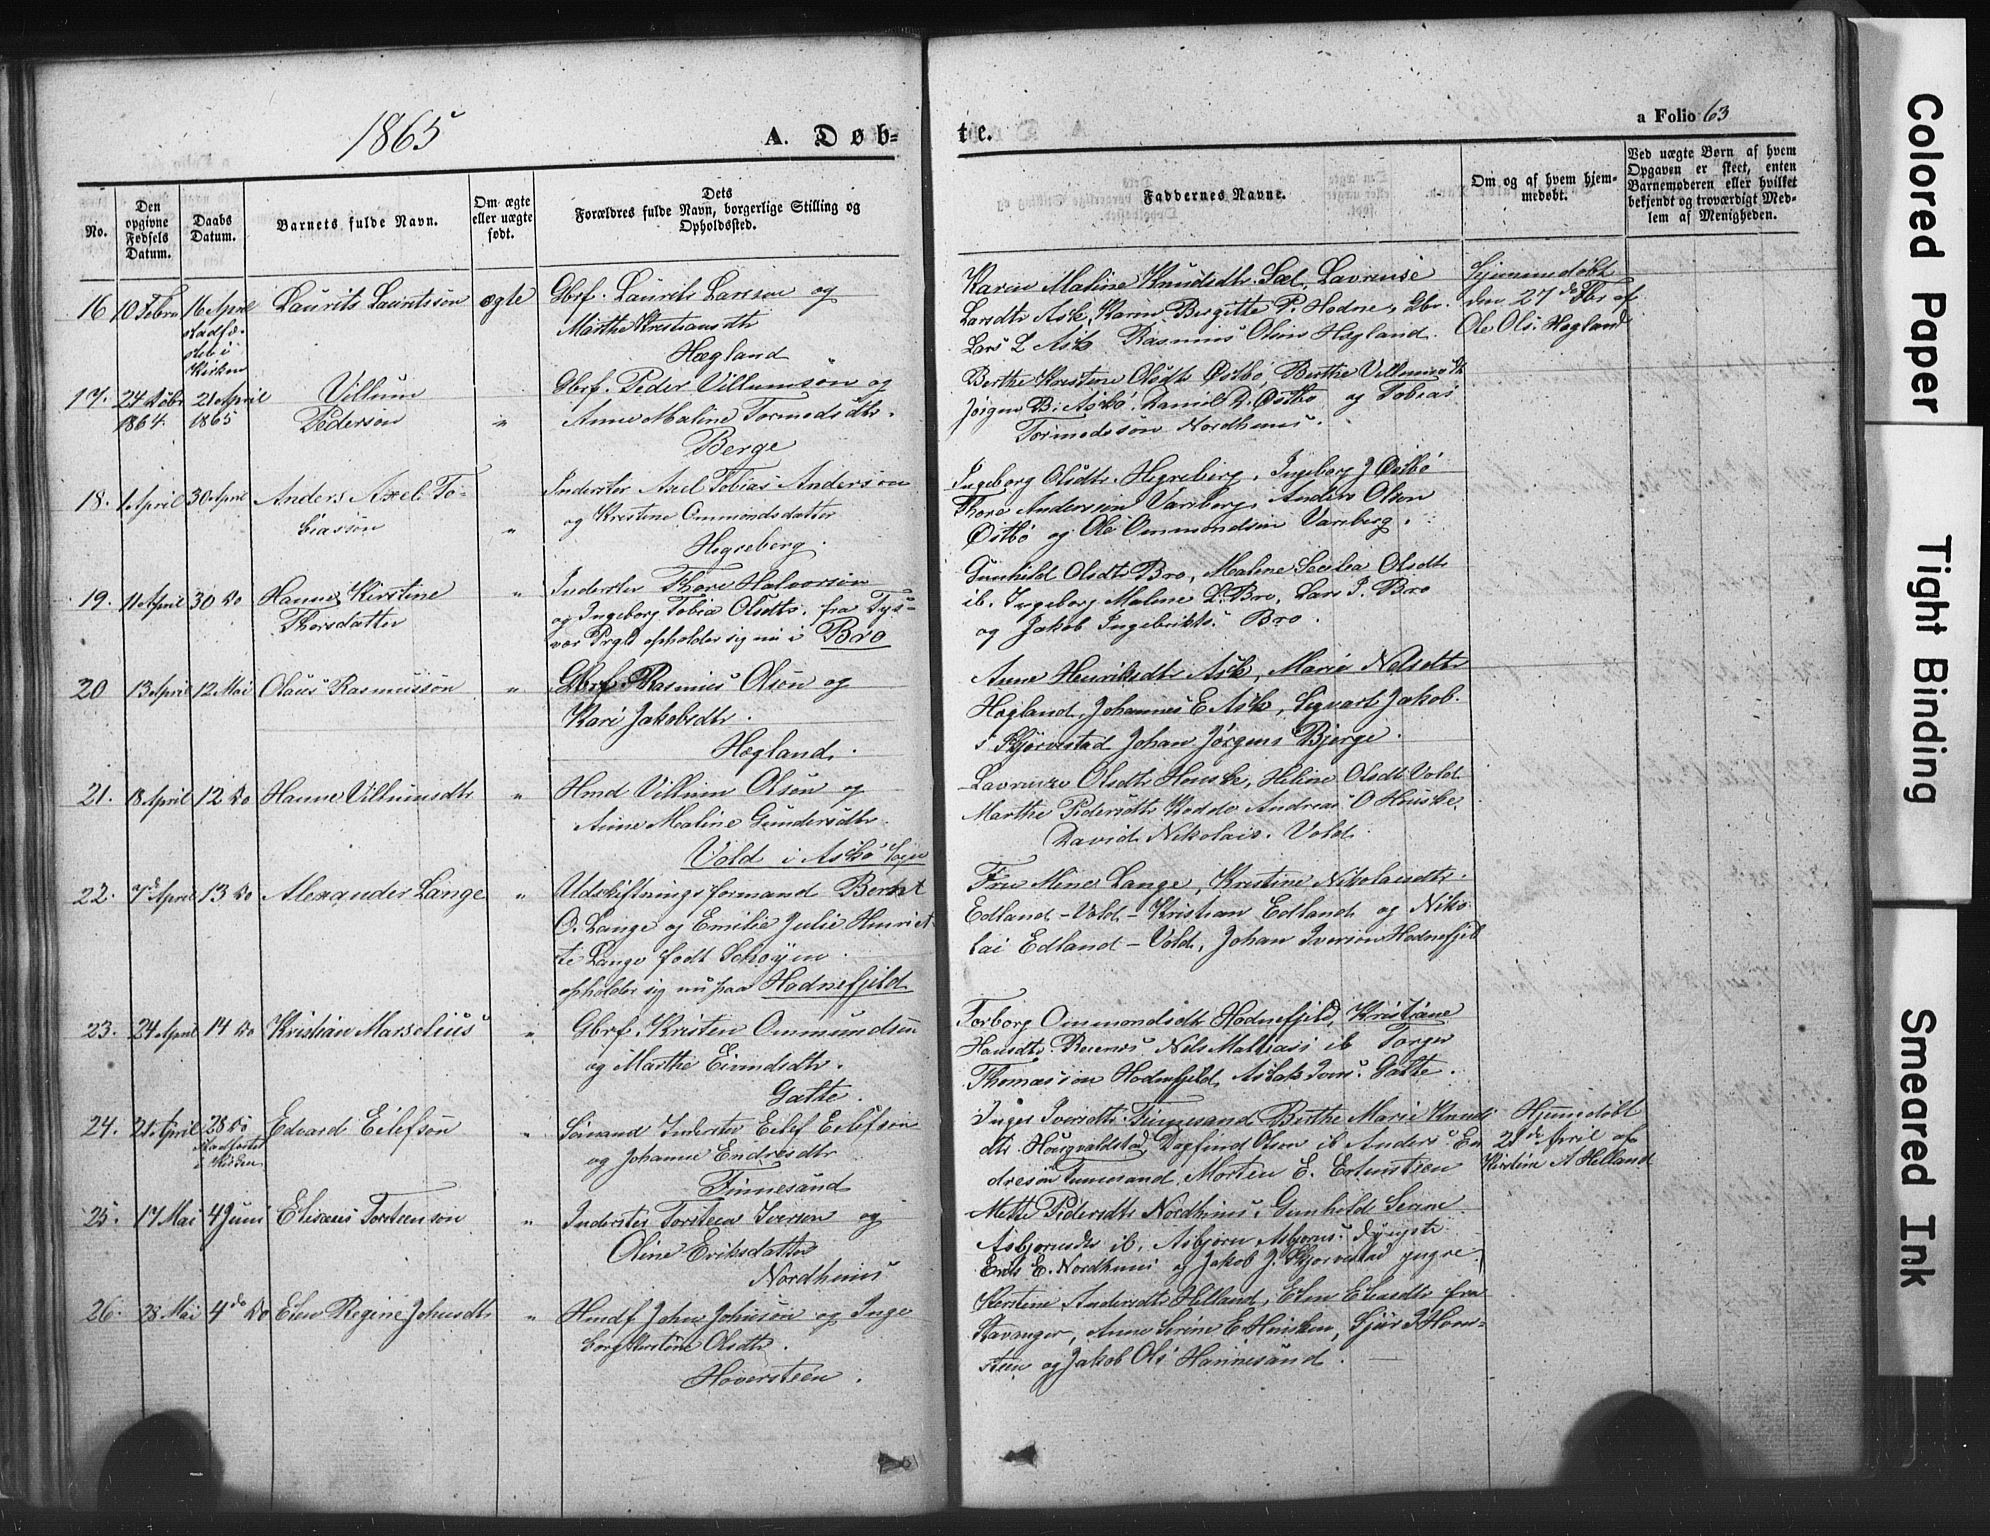 1865
A. Døb-
te.
a Folio 63
No.
Den opgivne Fødsels Datum.
Daabs Datum.
Barnets fulde Navn.
Om ægte eller uægte født.
Dets Forældres fulde Navn, borgerlige Stilling og Opholdssted.
Faddernes Navne.
Om og af hvem hjemmedøbt.
Ved uægte Børn af hvem Opgaven er skeet, enten Barnemoderen eller hvilket bekjendt og troværdigt Medlem af Menigheden.
16 10 Febru 16 April Laurits Lauritssøn ægte Gbrf. Laurits Larsson og
i Kirken
Marthe Kristiansdtr
Hægland
Karen Maline Knudsdtr Sæl, Lavrense
Larsdtr Ask, Karen Bergitte P. Hodne, Gbr.
Lars L Ask Rasmus Olsen Hægland.
Hjemmedøbt
den 27de Fbr af
Ole Ols. Hægland
17. 24 1864. 21 April 1865 Villum Pedersøn " Gbrf. Peder Villumsøn og
Anne Maline Tormodsdtr.
Berge
Berthe Kristine Olsdtr Østbø, Berthe Villumsdtr
Jørgen B. Askø. Daniel D. Østbø og Tobias
Tormodssøn Nordhuus.
18. 1 April 30 April Anders Axel To-
biassøn " Inderster Axel Tobias Anderson
og Kristine Ommondsdatter
Hegreberg.
Ingeborg Olsdtr. Hegreberg, Ingeborg J Østbø
Thore Anderssen Varsberg, Anders Olson
Østbø og Ole Ommondsen Varsberg.
19. 11 April 30 Do Hanne Kirstine
Thorsdatter " Inderster Thore Halvorsøn
og Ingeborg Tobia Olsdtr. fra Tys-
vær Prgld opholder sig nu i Bro
Gunhild Olsdtr Bro, Malene Secilia Olsdtr
ib. Ingeborg Malene L. Bro, Lars P. Bro
og Jakob Ingebrikts. Bro.
20 13 April 12 Mai Olaus Rasmussøn " Gbrf. Rasmus Olsøn og
Kari Jakobsdtr.
Hægland.
Anne Henriksdtr Ask, Marie Nelsdtr
Hægland, Johannes E Ask, Sigvart Jakob.
s Skjørvestad Johan Jørgens Bjerge.
21. 18 April 12 Do Hanne Villumsdtr " Hmd Villum Olsøn og
Anne Maline Gundersdtr.
Vold i Askø Sogn
Lavrense Olsdtr Houske, Heline Olsdtr Vold
Marthe Pedersdtr Andreas O Houske,
David Nikolais. Vold.
22. 7d April 13 Do Alexander Lange " Udskiftningsformand Bernt
O. Lange og Emilie Julie Henriet
te Lange født Schøyen.
opholder sig nu paa Hodnefjeld
Fru Mine Lange, Kristine Nikolaisdtr.
Edland - Vold - Kristian Edland og Niko
lai Edland - Vold, Johan Iverson Hodnefjeld
23. 24 April 14 Do Kristian Marselius " Gbrf. Kristen Ommundsen
og Marthe Eivindsdtr.
Galte.
Torborg Ommondsdtr Hodnefjeld, Kristiane
Hansdtr. Nels Mathias ib Torger
Thomassøn Hodnefjeld, Aslak Ivers. Galte.
24. 21 April 28 Do Edvard Eilefsøn " Sømand Inderster Eilef Eilefsøn
i Kirken.
og Johanne Endresdtr
Finnesand
Inger Iversdtr. Finnesand Berthe Marie Knuds
dtr. Dagfind Olsen ib Anders En
dresøn Finnesand, Morten E.
Hjemmedøbt
21de April af
Kirstine A Helland
25. 17 Mai 4 Juni Eliseus Torsteenson " Inderster Torsteen Iverson og
Oline Eriksdatter
Nordhuus
Mette Pedersdtr Nordhuus, Gunhild Serine
Asbjørnsdtr ib. Asbjørn Asbjørns. Dysjeste
Erik E. Nordhuus og Jakob J. Skjørvestad yngre
26. 28 Mai 4de Do Elen Regine Johnsdtr " Hmdf John Johnson og Inge
borg Kirstine Olsdtr.
Hovorsteen.
Kirstine Andersdtr Helland, Elen Eliasdtr fra
Stavanger, Anne Serine E Housken, Sjur J Hove-
steen og Jakob Ols Hannesand.
Colored Paper
Tight Binding
Smeared Ink